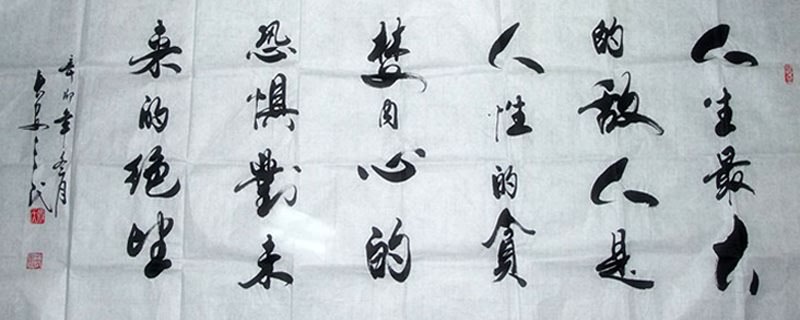 人生最大
的敌人是
人性的貪
婪内心的
恐惧對未
来的绝望
辛卯年冬月